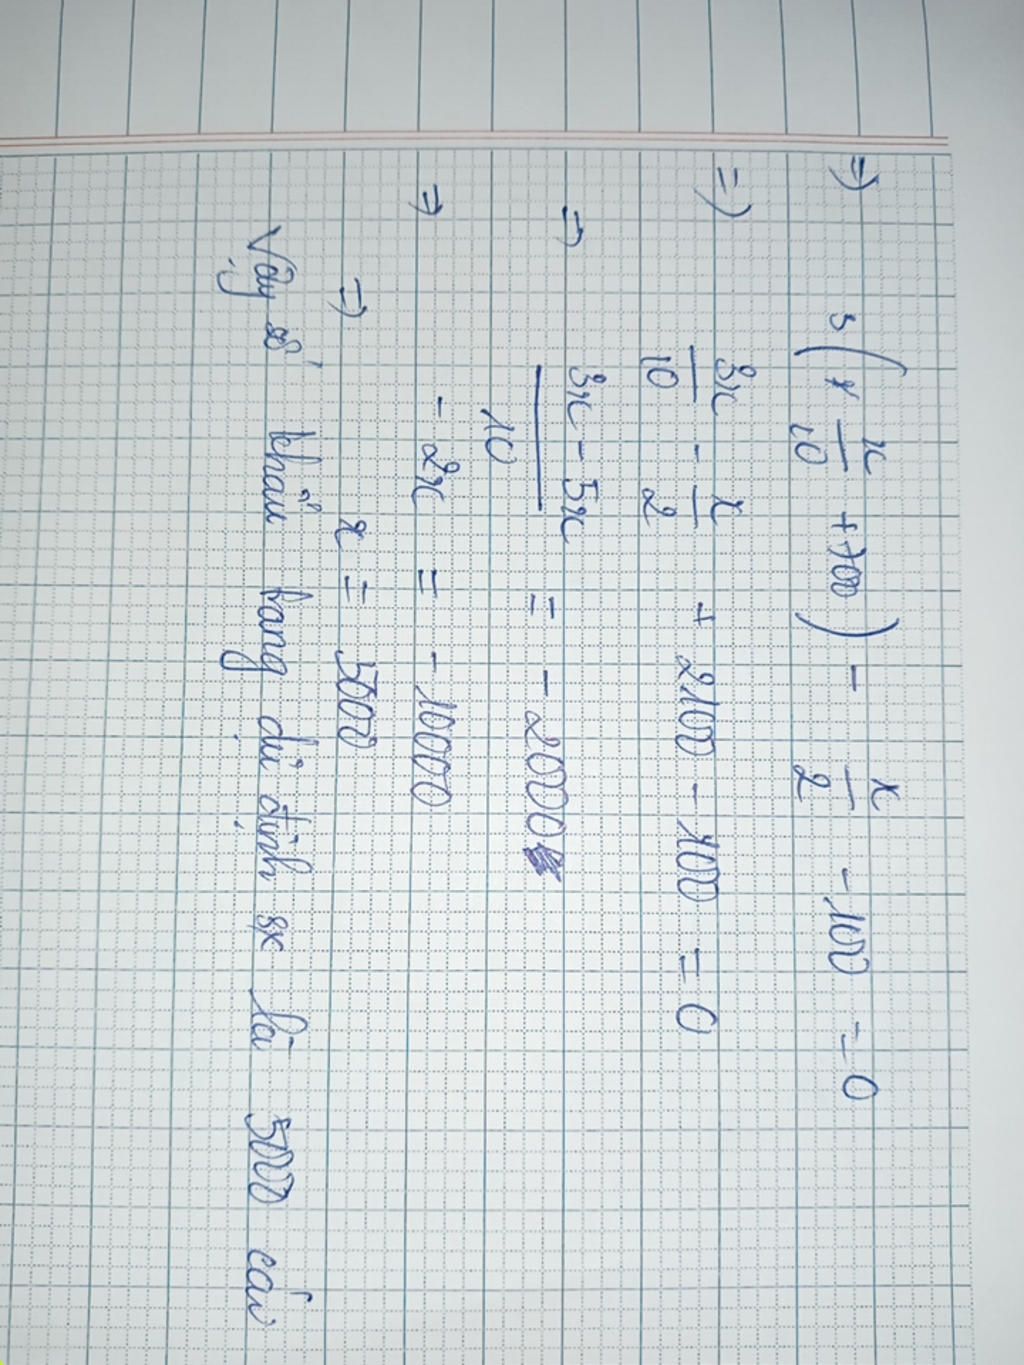 =) 3( x/10 + 700 ) - x/2 - 100 = 0
=) 3x/10 - x/2 + 2100 - 100 = 0
=) (3x - 5x)/10 = - 2000
=) - 2x = - 10000
=) x = 5000
Vậy số khẩu trang dự định sx là 5000 cái